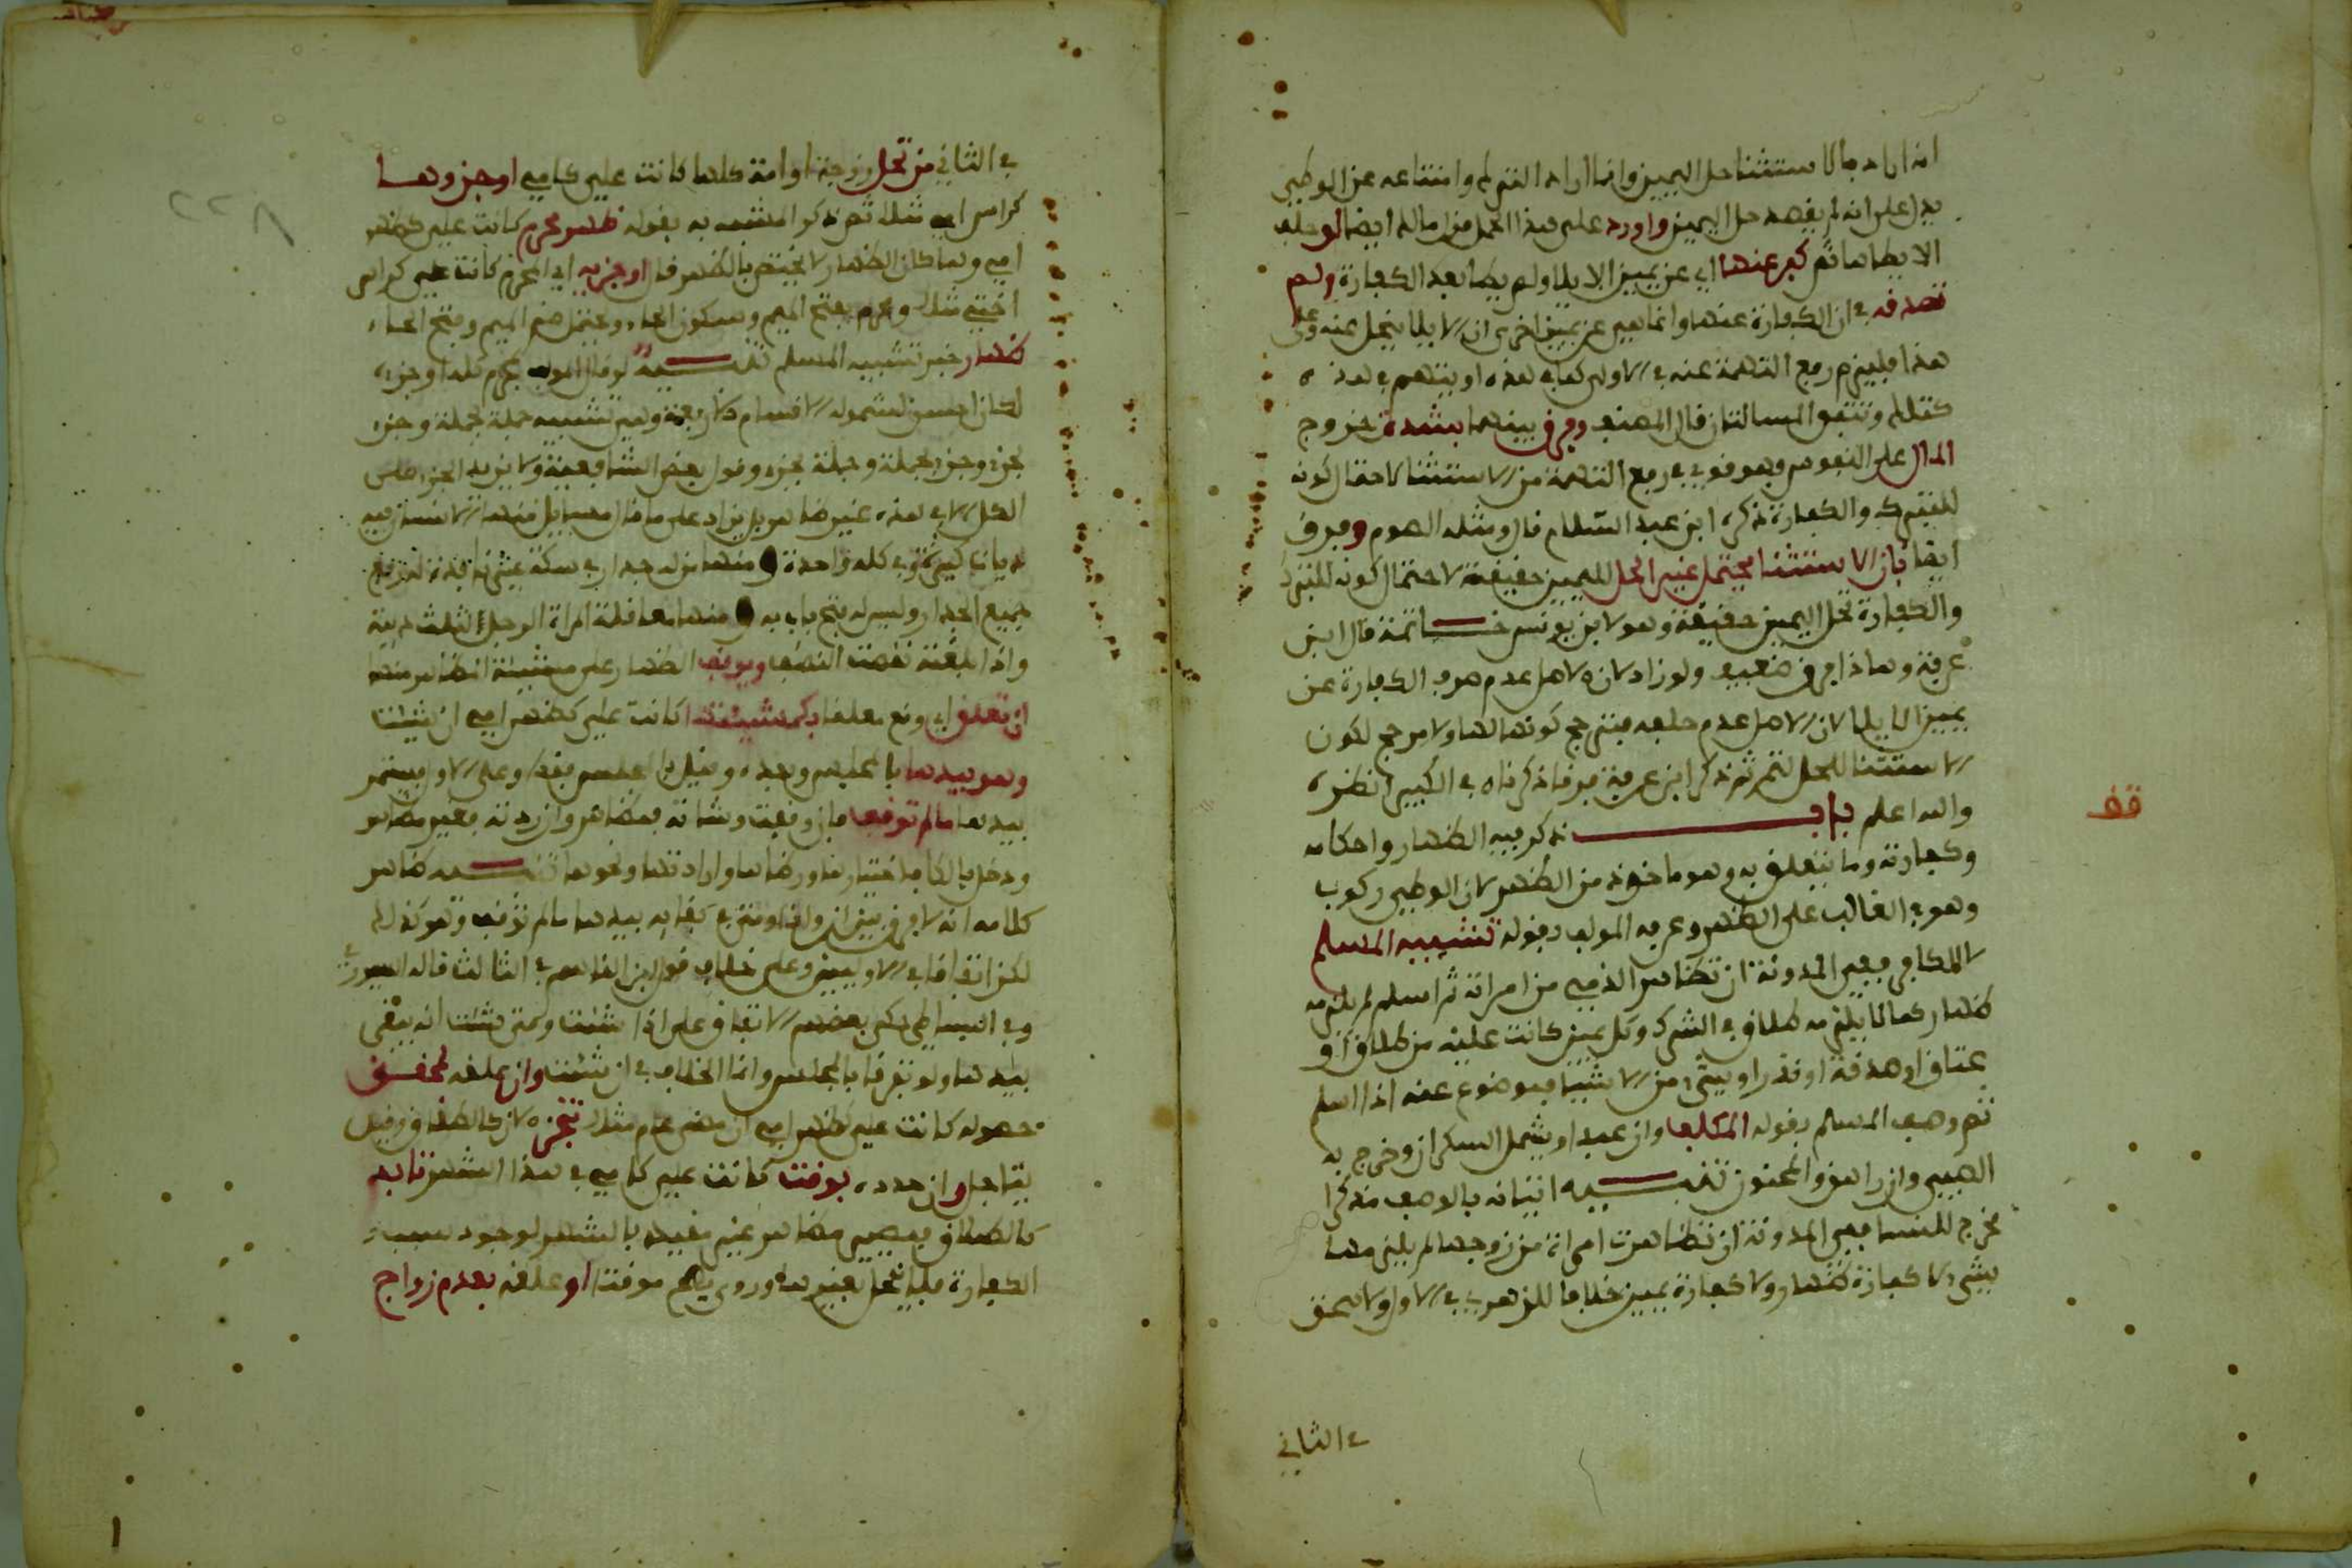 انه اراد بالاستثنا حل اليمين وانما اراد التبرك وامتناعه عن الوطي
يدل على انه لم يقصد حل اليمين واورد على هذا الحمل من امالك ايضا لو حلف
الا يطاها ثم كفر عنها اي عن يمين الايلا ولم يطا بعد الكفارة ولم
تصدقه في ان الكفارة عنها وانما هي عن يمين اخرى ان الايلا ينحل عنه وعلى
هذا فيلزم رفع التهمة عنه في الاولى كما في هذه او يتهم في هذه
كتلك وتتفق المسالتان قال المصنف وفرق بينهما بشدة خروج
المال على النفوس وهو قوي في رفع التهمة من الاستثنا لاحتمال كونه
للتبرك والكفارة ذكره ابن عبد السلام قال ومثله الصوم وفرق
ايضا بان الاستثنا يحتمل غير الحل لليمين حقيقة لاحتمال كونه للتبرك
والكفارة تحل اليمين حقيقة وهو لابن يونس خاتمة قال ابن
عرفة وهذا فرق ضعيف ولو زاد لان الاصل عدم صرف الكفارة عن
يمين الايلا لان الاصل عدم حلفه فترجح كونها لها ولا مرجح لكون
الاستثنا للحل لتم ثم ذكر ابن عرفة فرقا ذكرناه في الكبير انظره
والله اعلم باب ذكر فيه الظهار واحكامه
قف
وكفارته وما يتعلق به وهو ماخوذ من الظهر لان الوطي ركوب
وهو في الغالب على الظهر وعرفه المولف بقوله تشبيه المسلم
لا الكافر ففي المدونة ان تظاهر الذمي من امراته ثم اسلم لم يلزمه
ظهار كما لا يلزمه طلاق في الشرك وكل يمين كانت عليه من طلاق او
عتاق او صدقة او نذر او شيء من الاشيا فموضوع عنه اذا اسلم
ثم وصف المسلم بقوله المكلف وان عبدا ويشمل السكران وخرج به
الصبي وان راهق والمجنون تنبيه اتيانه بالوصف مذكرا
مخرج للنسا ففي المدونة ان تظاهرت امراة من زوجها لم يلزمها
شيء لا كفارة ظهار ولا كفارة يمين خلافا للزهري في الاول ولاسحق
في الثاني
في الثاني من تحل زوجة او امة كلها كانت علي كامي او جزوها
كراس امي مثلا ثم ذكر المشبه به بقوله ظهر محرم كانت علي كظهر
امي ولما كان الظهار لا يختص بالظهر قال او جزيه اي المحرم كانت علي كراس
اختي مثلا ومحرم بفتح الميم وسكون الحاء ويحتمل ضم الميم وفتح الحاء
ظهار خبر تشبيه المسلم تنبيه لو قال المولف بمحرم كله او جزءه
لكان احسن لشموله الاقسام الاربعة وهي تشبيه جملة بجملة وجزء
بجزء وجزء بجملة وجملة بجزء وقول بعض الشافعية ولا يزيد الجزء على
الكل الا في هذه غير ظاهر بل يزاد على ما قال مسايل منها الانسان فيه
ديات كثيرة وفي كله واحدة ومنها من له جدار في سكة غير نافذة له رفع
جميع الجدار وليس له فتح باب به ومنها معاقلة المراة الرجل لثلث ديته
واذا بلغته نقصت النصف ويوقف الظهار على مشيئة المظاهر منها
ان تعلق اي وقع معلقا بكمشيئتها كانت علي كظهر امي ان شئت
وهو بيدها بالمجلس وبعده وقيل بالمجلس فقط وعلى الاول يستمر
بيدها ما لم توقف فان وقفت وشاته فمظاهر وان ردته فغير مظاهر
ودخل بالكاف اختيارها ورضاها وارادتها ونحوها تنبيه ظاهر
كلامه انه لا فرق بين ان واذا ومتى في بقايه بيدها ما لم توقف وهو كذلك
لكن اتفاقا في الاوليين وعلى خلاف قول ابن القاسم في الثالث قاله السيوري
وفي البساطي حكى بعضهم الاتفاق على اذا شئت ومتى شئت انه يبقى
بيدها ولو تفرقا بالمجلس وانما الخلاف في ان شئت وان علقه لمحقق
حصوله كانت علي كظهر امي ان مضى عام مثلا تنجز لانه كالطلاق وقيل
يتاجل وان حدده بوقت كانت علي كامي في هذا الشهر تابد
كالطلاق فيصير مظاهرا غير مقيد بالشهر لوجود سبب
الكفارة فلا ينحل بغيرها وروي يصح موقتا او علقه بعدم زواج
٢٢٨